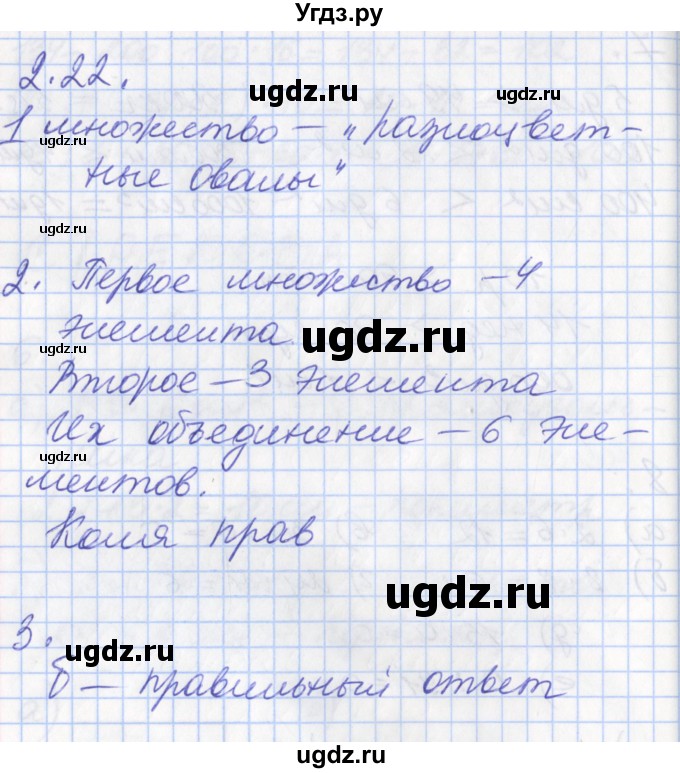 Угдз.ру
2.22.
1 множество – „разноцвет-
ные овалы"
2. Первое множество – 4
элемента
Второе – 3 элемента
Их объединение – 6 эле-
ментов.
Коля прав
3.
б – правильный ответ
ugdz.ru
ugdz.ru
ugdz.ru
ugdz.ru
ugdz.ru
ugdz.ru
ugdz.ru
ugdz.ru
ugdz.ru
ugdz.ru
ugdz.ru